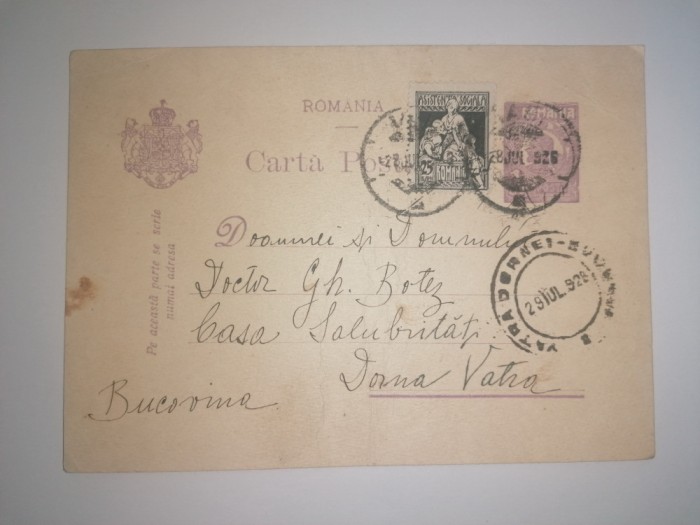 ROMANIA
Carta Pos
ASISTENTA SOCIALA
25
28 IUL 926
28 IUL 926
ROMANIA
Pe această parte se scrie
numai adresa
Doamnei și Domnului
Doctor Gh. Botez
Casa Salubrități
Dorna Vatra
Bucovina
VATRA DORNEI-
29 IUL. 926